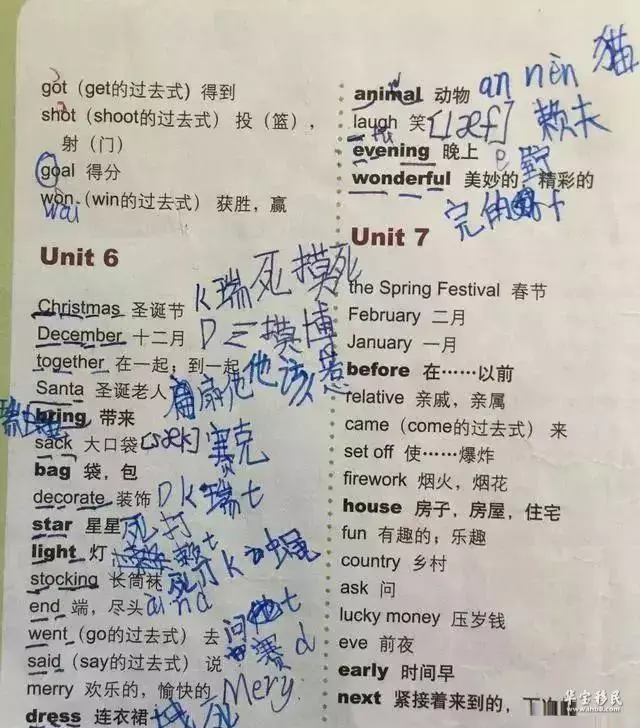 got (get的过去式) 得到
shot (shoot的过去式) 投（篮），
射（门）
goal 得分
won (win的过去式) 获胜，赢
wai
Unit 6
Christmas 圣诞节 k瑞死摸死
December 十二月 D三摸博
together 在一起；到一起
Santa 圣诞老人 扇他 他该惹
bring 带来
sack 大口袋 [sæk] 赛克
bag 袋，包
decorate 装饰 D k瑞t
star 星星 死打
light 灯 赖t
stocking 长筒袜 死 k
end 端，尽头 aind
went (go的过去式) 去 问他t
said (say的过去式) 说 赛d
merry 欢乐的，愉快的 Mery
dress 连衣裙
animal 动物 an nèn 猫
laugh 笑 [læf] 赖夫
evening 晚上
wonderful 美妙的，精彩的
完
Unit 7
the Spring Festival 春节
February 二月
January 一月
before 在……以前
relative 亲戚，亲属
came (come的过去式) 来
set off 使……爆炸
firework 烟火，烟花
house 房子，房屋，住宅
fun 有趣的；乐趣
country 乡村
ask 问
lucky money 压岁钱
eve 前夜
early 时间早
next 紧接着来到的，
华宝移民